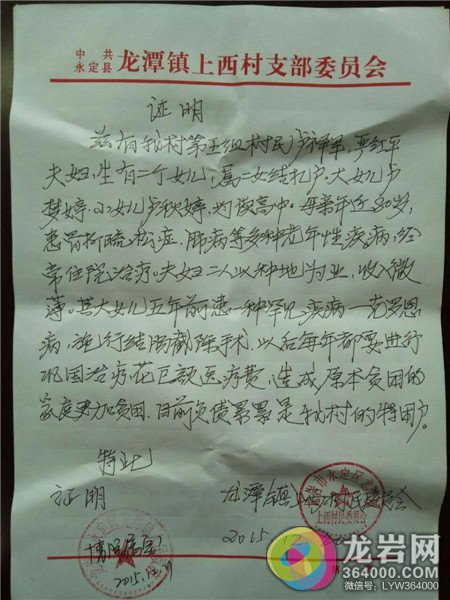 中共
永定县 龙潭镇上西村支部委员会
证明
兹有我村第五组村民 严红平
夫妇,生有二个女儿,属二女结扎户,大女儿
梦婷,小女儿 秋婷,均读高中,母亲年近80岁,
患骨 疏松症,肺病等多种老年性疾病,经
常住院治疗。夫妇二人以种地为业,收入微
薄。其大女儿五年前患一种罕见疾病—克罗恩
病,施行结肠截除手术,以后每年都要进行
巩固治疗,花巨额医疗费,造成原本贫困的
家庭更加贫困,目前负债累累是我村的特困户。
特此
证明
龙潭镇上西村民委员会
情况属实
2015.12
2015.12
龙岩网
364000.com
微信号:LYW364000.com